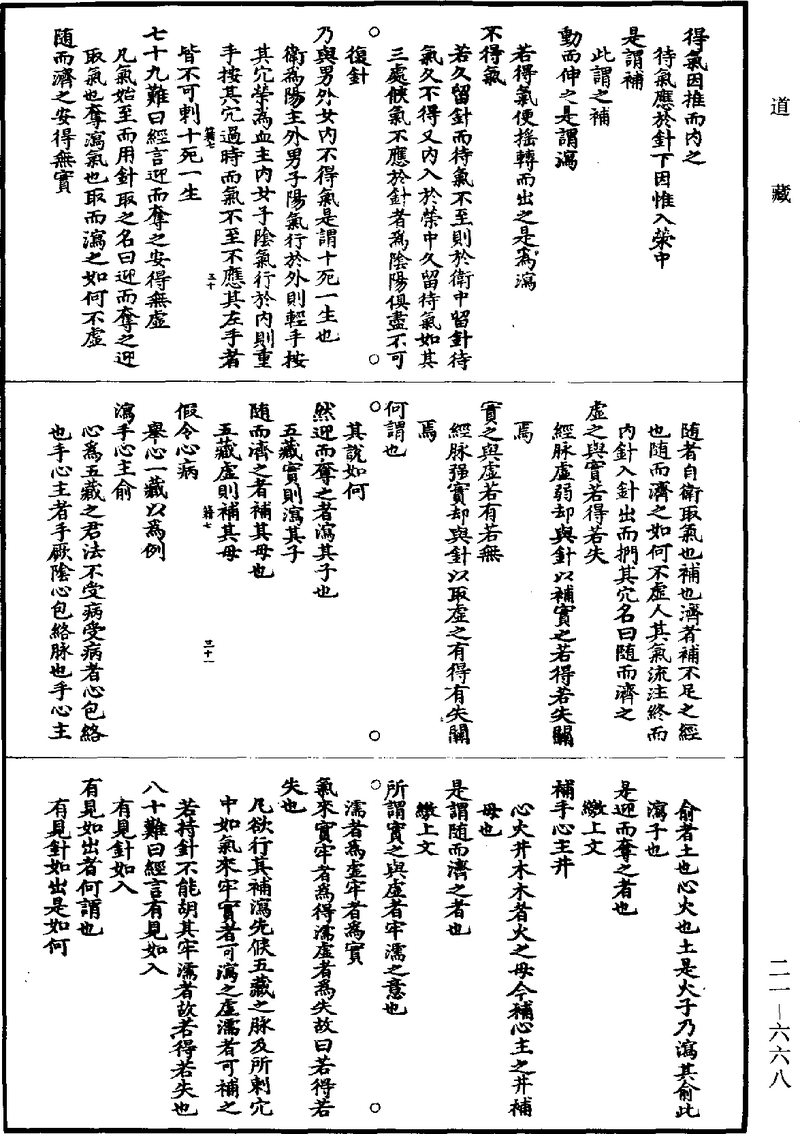 道藏
得氣因推而内之
待氣應於針下因惟入榮中
是謂補
此謂之補
動而伸之是謂瀉
若得氣便搖轉而出之是爲瀉
不得氣
若久留針而待氣不至則於衛中留針待
氣久不得又内入於榮中久留待氣如其
三處候氣不應於針者爲陰陽俱盡不可
復針
乃與男外女内不得氣是謂十死一生也
衛爲陽主外男子陽氣行於外則輕手按
其穴榮爲血主内女子陰氣行於内則重
手按其穴過時而氣不至不應其左手者
皆不可刺十死一生
七十九難曰經言迎而奪之安得無虛
凡氣始至而用針取之名曰迎而奪之迎
取氣也奪瀉氣也取而瀉之如何不虛
隨而濟之安得無實
隨者自衛取氣也補也濟者補不足之經
也隨而濟之如何不虛人其氣流注終而
内針入針出而捫其穴名曰隨而濟之
虛之與實若得若失
經脉虛弱却與針以補實之若得若失關
焉
實之與虛若有若無
經脉强實却與針以取虛之有得有失關
焉
何謂也
其說如何
然迎而奪之者瀉其子也
五藏實則瀉其子
隨而濟之者補其母也
五藏虛則補其母
假令心病
舉心一藏以爲例
瀉手心主俞
心爲五藏之君法不受病受病者心包絡
也手心主者手厥陰心包絡脉也手心主
俞者土也心火也土是火子乃瀉其俞此
瀉子也
是迎而奪之者也
繳上文
補手心主井
心火井木木者火之母今補心主之井補
母也
是謂隨而濟之者也
繳上文
所謂實之與虛者牢濡之意也
濡者爲虛牢者爲實
氣來實牢者爲得濡虛者爲失故曰若得若
失也
凡欲行其補瀉先候五藏之脉及所刺穴
中如氣來牢實者可瀉之虛濡者可補之
若持針不能胡其牢濡者故若得若失也
八十難曰經言有見如入
有見針如入
有見如出者何謂也
有見針如出是如何
二一—六六八